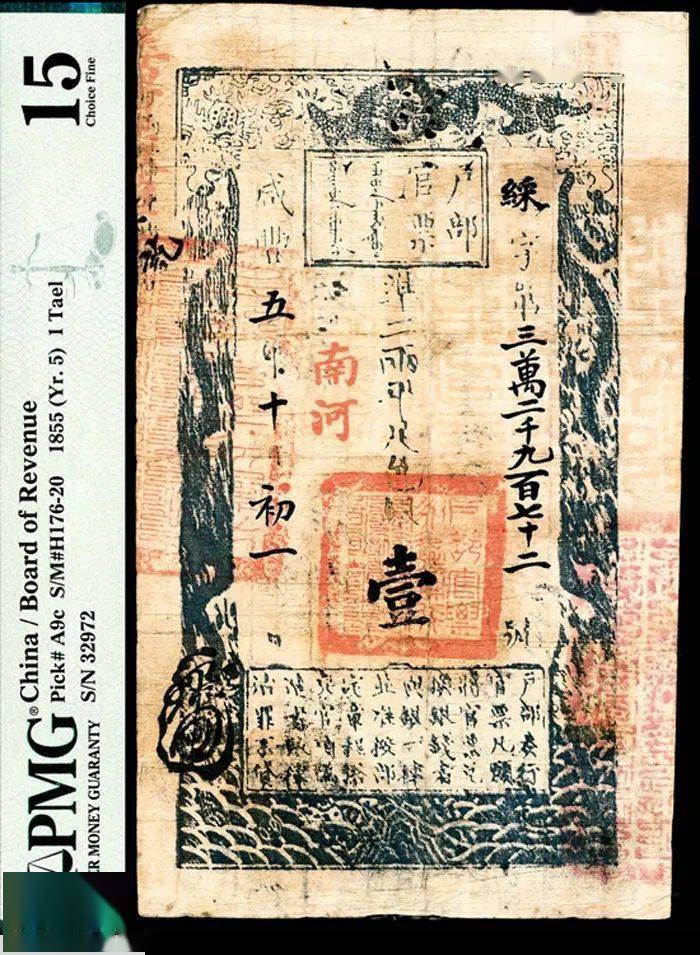 15
Choice Fine
China / Board of Revenue
Pick# A9c S/M#H176-20 1855 (Yr. 5) 1 Tael
S/N 32972
PMG®
ER MONEY GUARANTY
戶部
官票
綵字第三萬二千九百七十二號
準二兩平足色銀壹
南河
咸豐五年十月初一日
戶部奏行
官票凡願
將官票兌
換銀錢者
與銀一律
並准按部
定章程搭
交官項偽
造者依律
治罪不貸